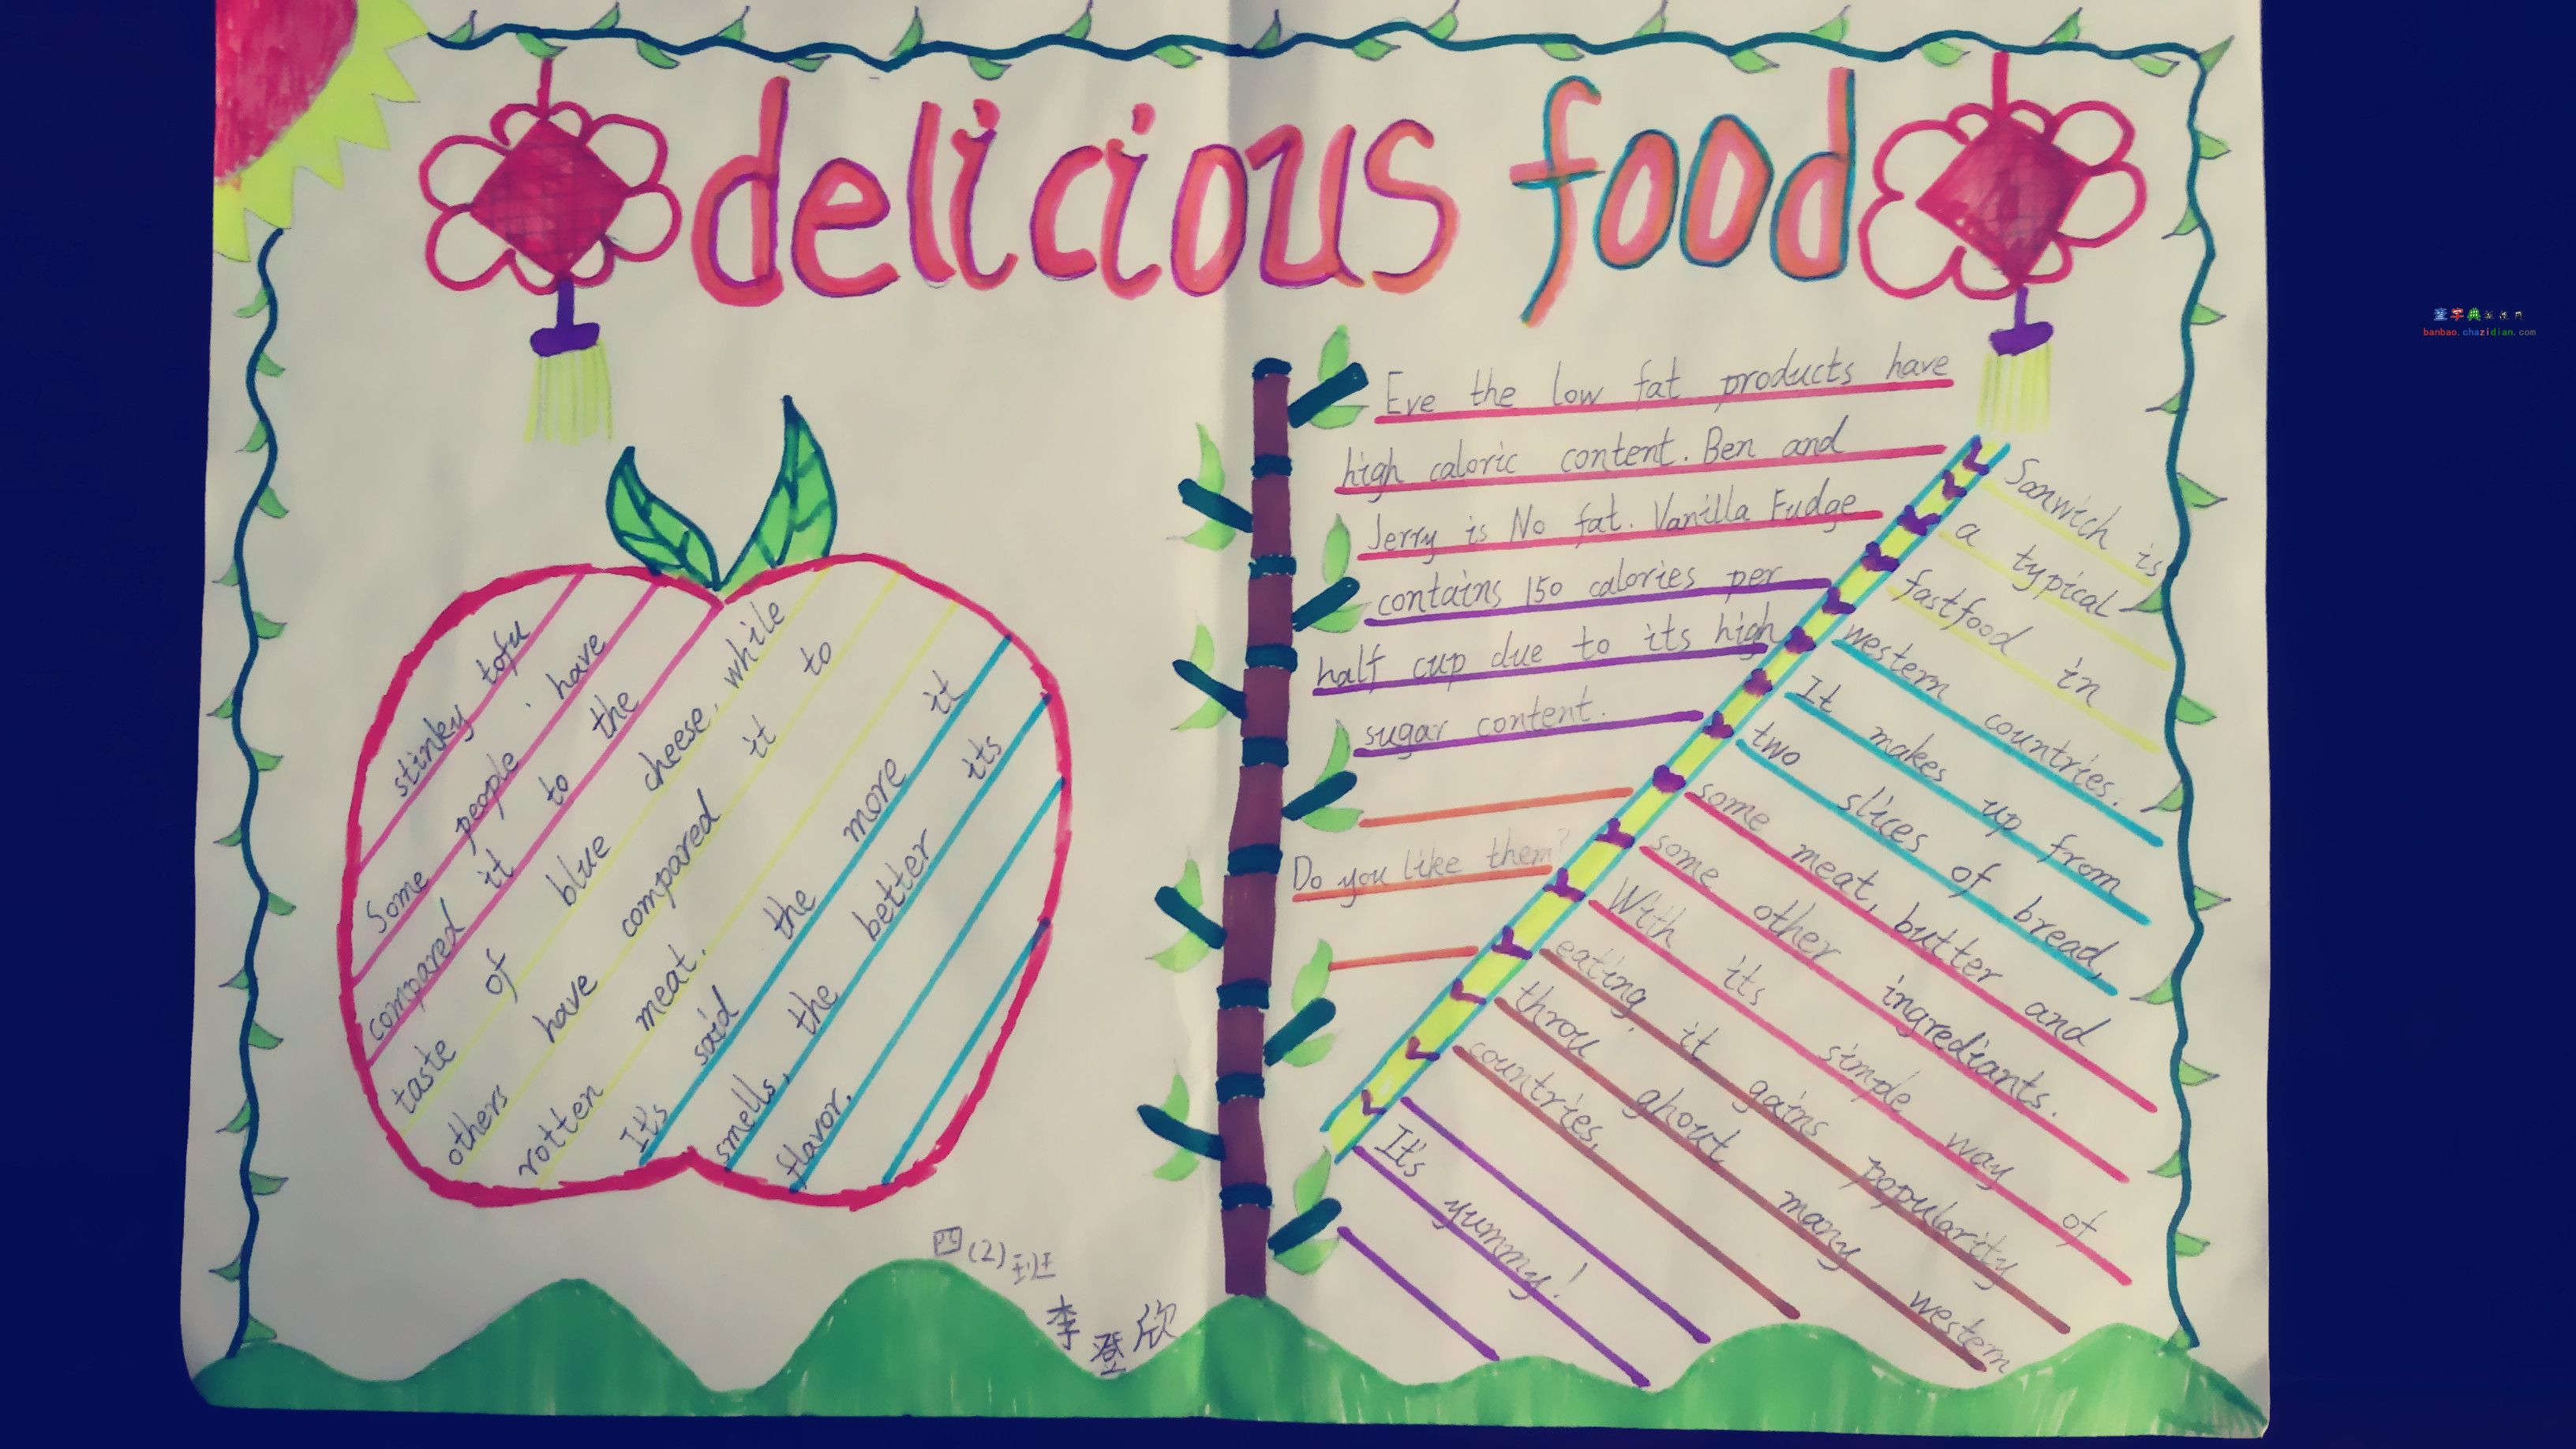 delicious food
stinky tofu
Some people . have
compared it to the
taste of blue cheese, while
others have compared it to
rotten meat.
It's said the more it
smells, the better its
flavor.
Eve the low fat products have
high caloric content. Ben and
Jerry is No fat. Vanilla Fudge
contains 150 calories per
half cup due to its high
sugar content.
Do you like them?
Sanwich is
a typical
fastfood in
western countries.
It makes up from
two slices of bread,
some meat, butter and
some other ingrediants.
With its simple way of
eating, it gains popularity
throu ghout many western
countries.
It's yummy!
四(2)班
李登欣
查字典
banbao.chazidian.com